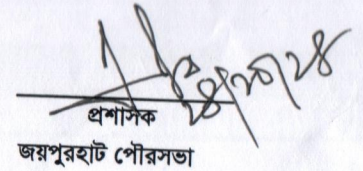 প্রশাসক
জয়পুরহাট পৌরসভা